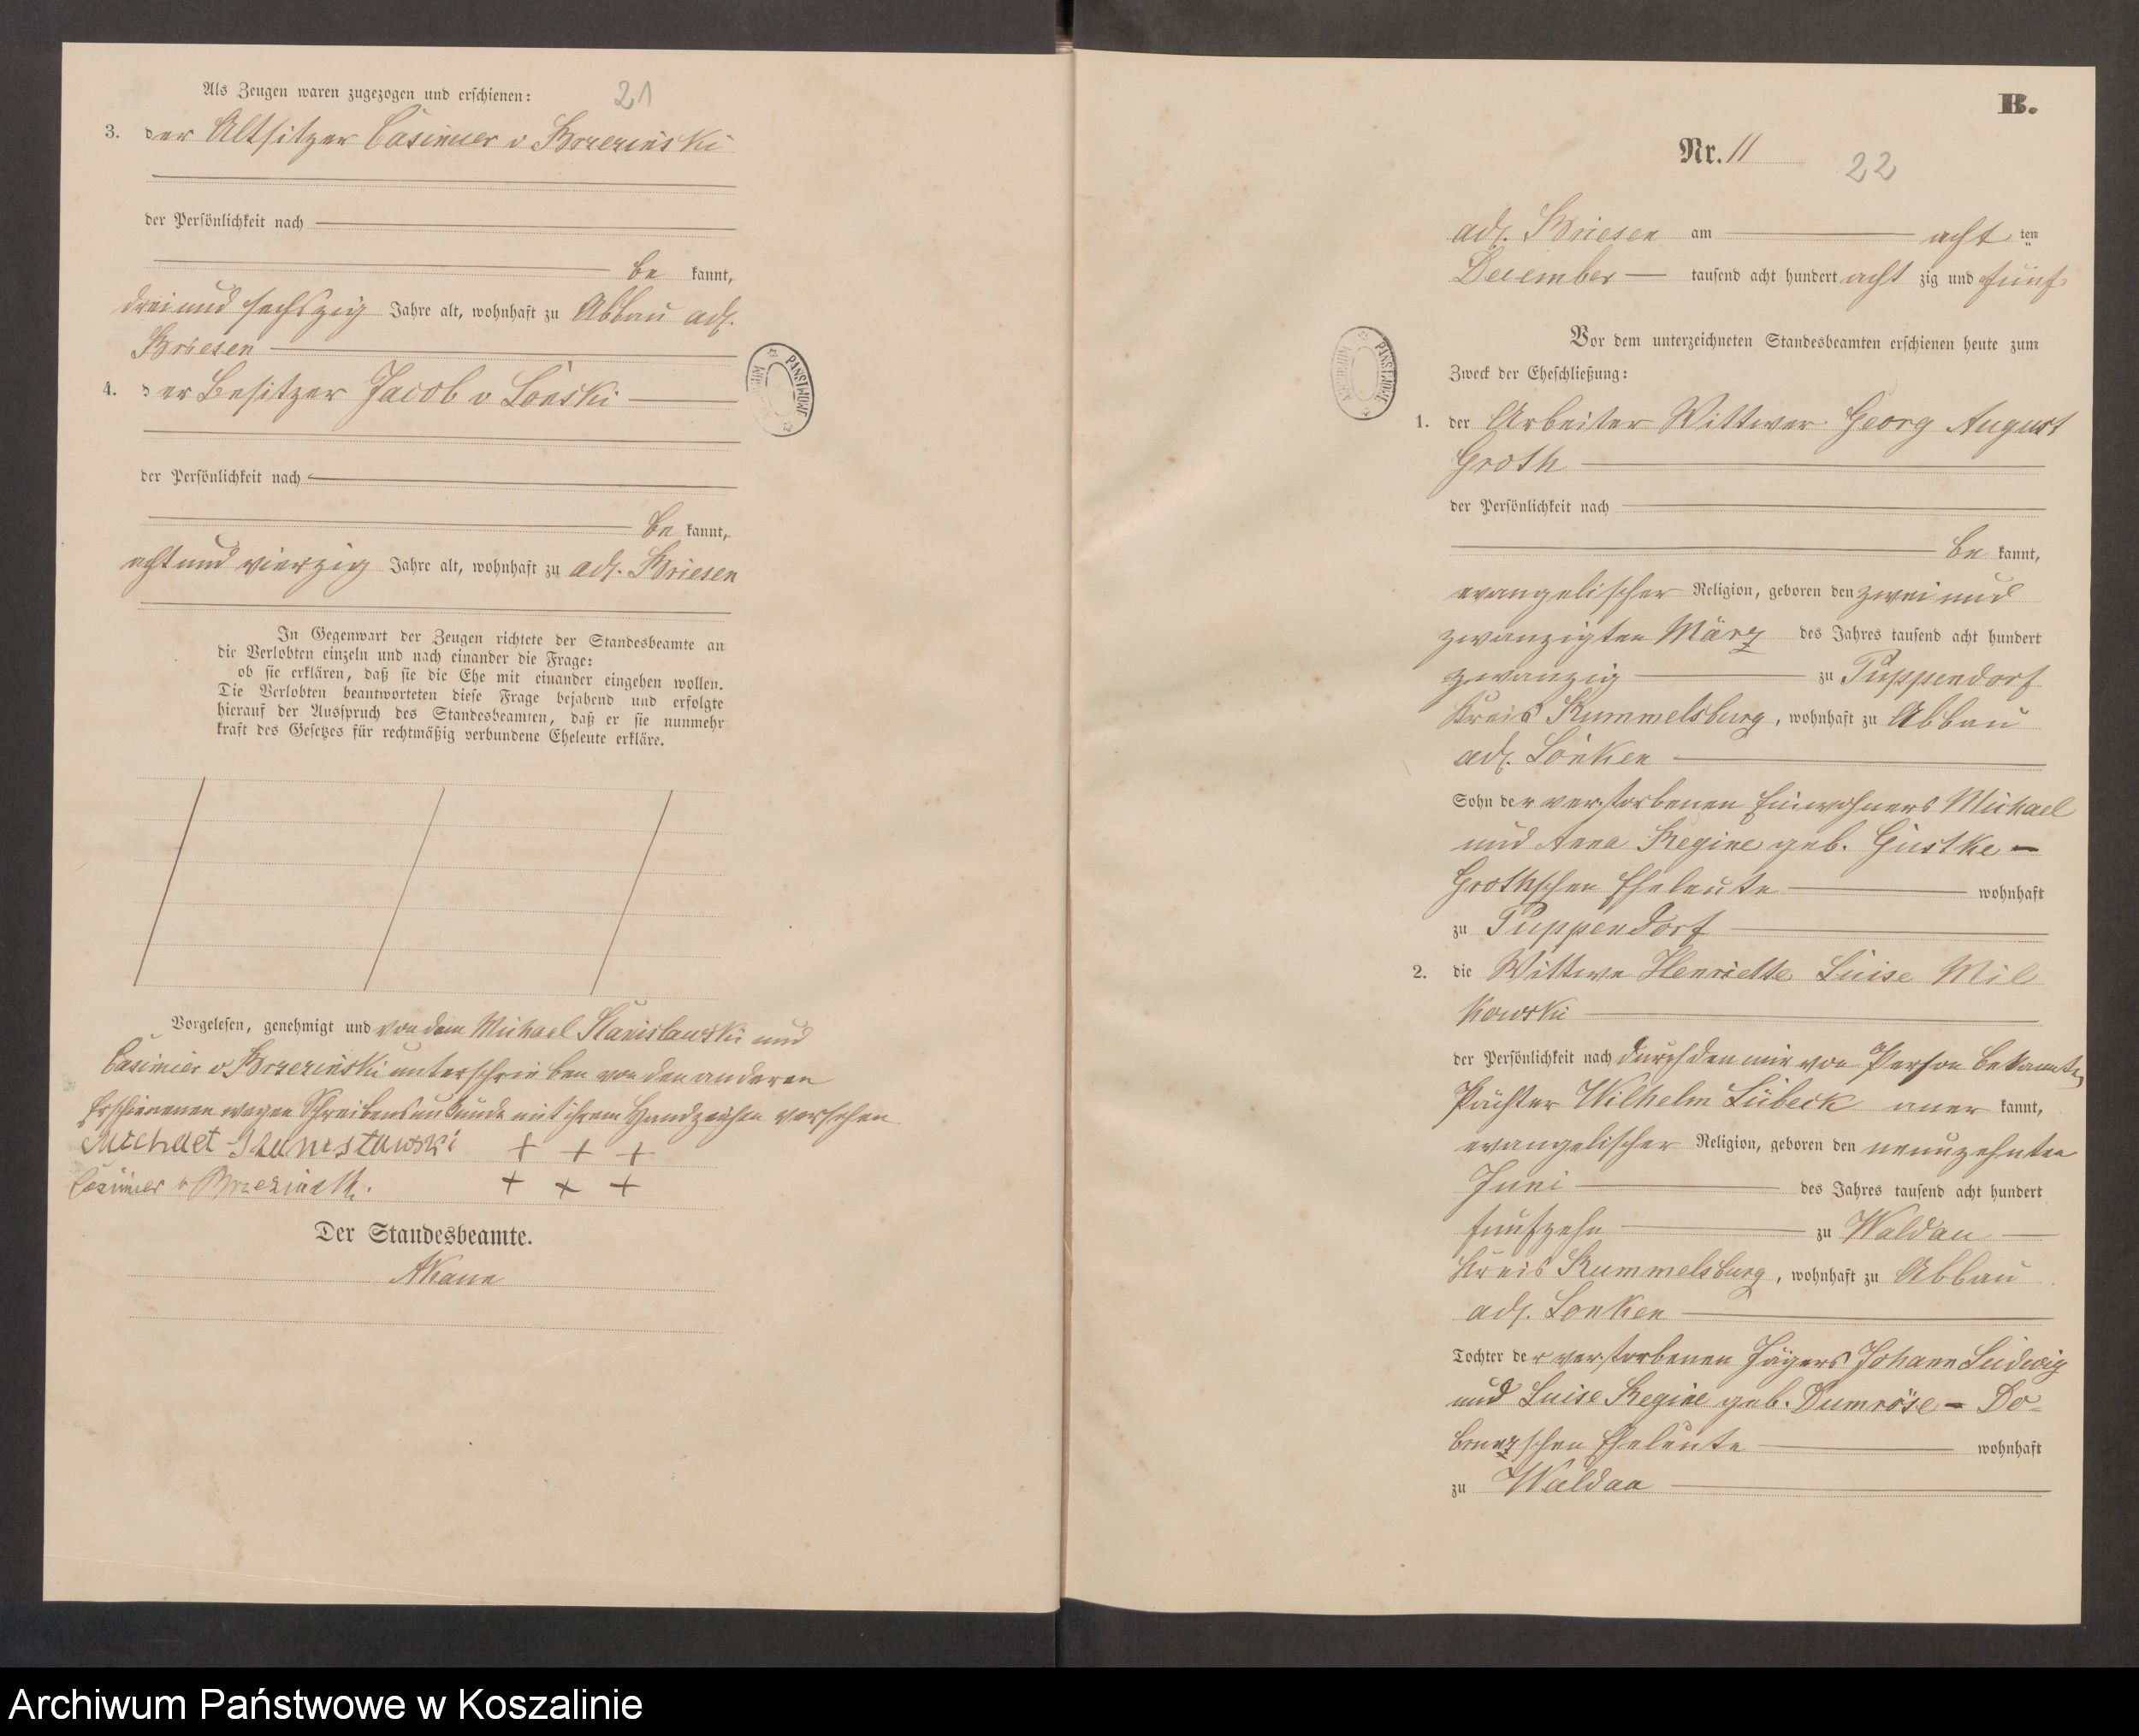 Als Zeugen waren zugezogen und erschienen:
21
3. der Altsitzer Casimier v Brzezinski
der Persönlichkeit nach
be kannt,
drei und sechszig Jahre alt, wohnhaft zu Abbau adl.
Briesen
4. der Besitzer Jacob v Lonski
der Persönlichkeit nach
be kannt,
acht und vierzig Jahre alt, wohnhaft zu adl. Briesen
In Gegenwart der Zeugen richtete der Standesbeamte an
die Verlobten einzeln und nach einander die Frage:
ob sie erklären, daß sie die Ehe mit einander eingehen wollen.
Die Verlobten beantworteten diese Frage bejahend und erfolgte
hierauf der Ausspruch des Standesbeamten, daß er sie nunmehr
kraft des Gesetzes für rechtmäßig verbundene Eheleute erkläre.
Vorgelesen, genehmigt und von dem Michael Stanislawski und
Casimier v Brzezinski unterschrieben von den anderen
Erschienenen wegen Schreibensunkunde mit ihrem Handzeichen versehen
Michael Stanislawski + + +
Casimier v Brzezinski. + + +
Der Standesbeamte.
B.
Nr. 11
22
adl. Briesen am acht ten
December tausend acht hundert acht zig und fünf
Vor dem unterzeichneten Standesbeamten erschienen heute zum
Zweck der Eheschließung:
1. der Arbeiter Wittwer Georg August
Groth
der Persönlichkeit nach
be kannt,
evangelischer Religion, geboren den zwei und
zwanzigten März des Jahres tausend acht hundert
zwanzig zu Puppendorf
Kreis Rummelsburg, wohnhaft zu Abbau
adl. Lonken
Sohn der verstorbenen Einwohners Michael
und Anna Regine geb. Gustke -
Grothschen Eheleute wohnhaft
zu Puppendorf
2. die Wittwe Henriette Luise Mil
kowski
der Persönlichkeit nach durch den mir von Person bekannten
Pächter Wilhelm Lübeck aner kannt,
evangelischer Religion, geboren den neunzehnten
Juni des Jahres tausend acht hundert
funfzehn zu Waldau
Kreis Rummelsburg, wohnhaft zu Abbau
adl. Lonken
Tochter der verstorbenen Jägers Johann Ludwig
und Luise Regine geb. Dumröse - Do-
schen Eheleute wohnhaft
zu Waldau
PAŃSTWOWE
PAŃSTWOWE
Archiwum Państwowe w Koszalinie